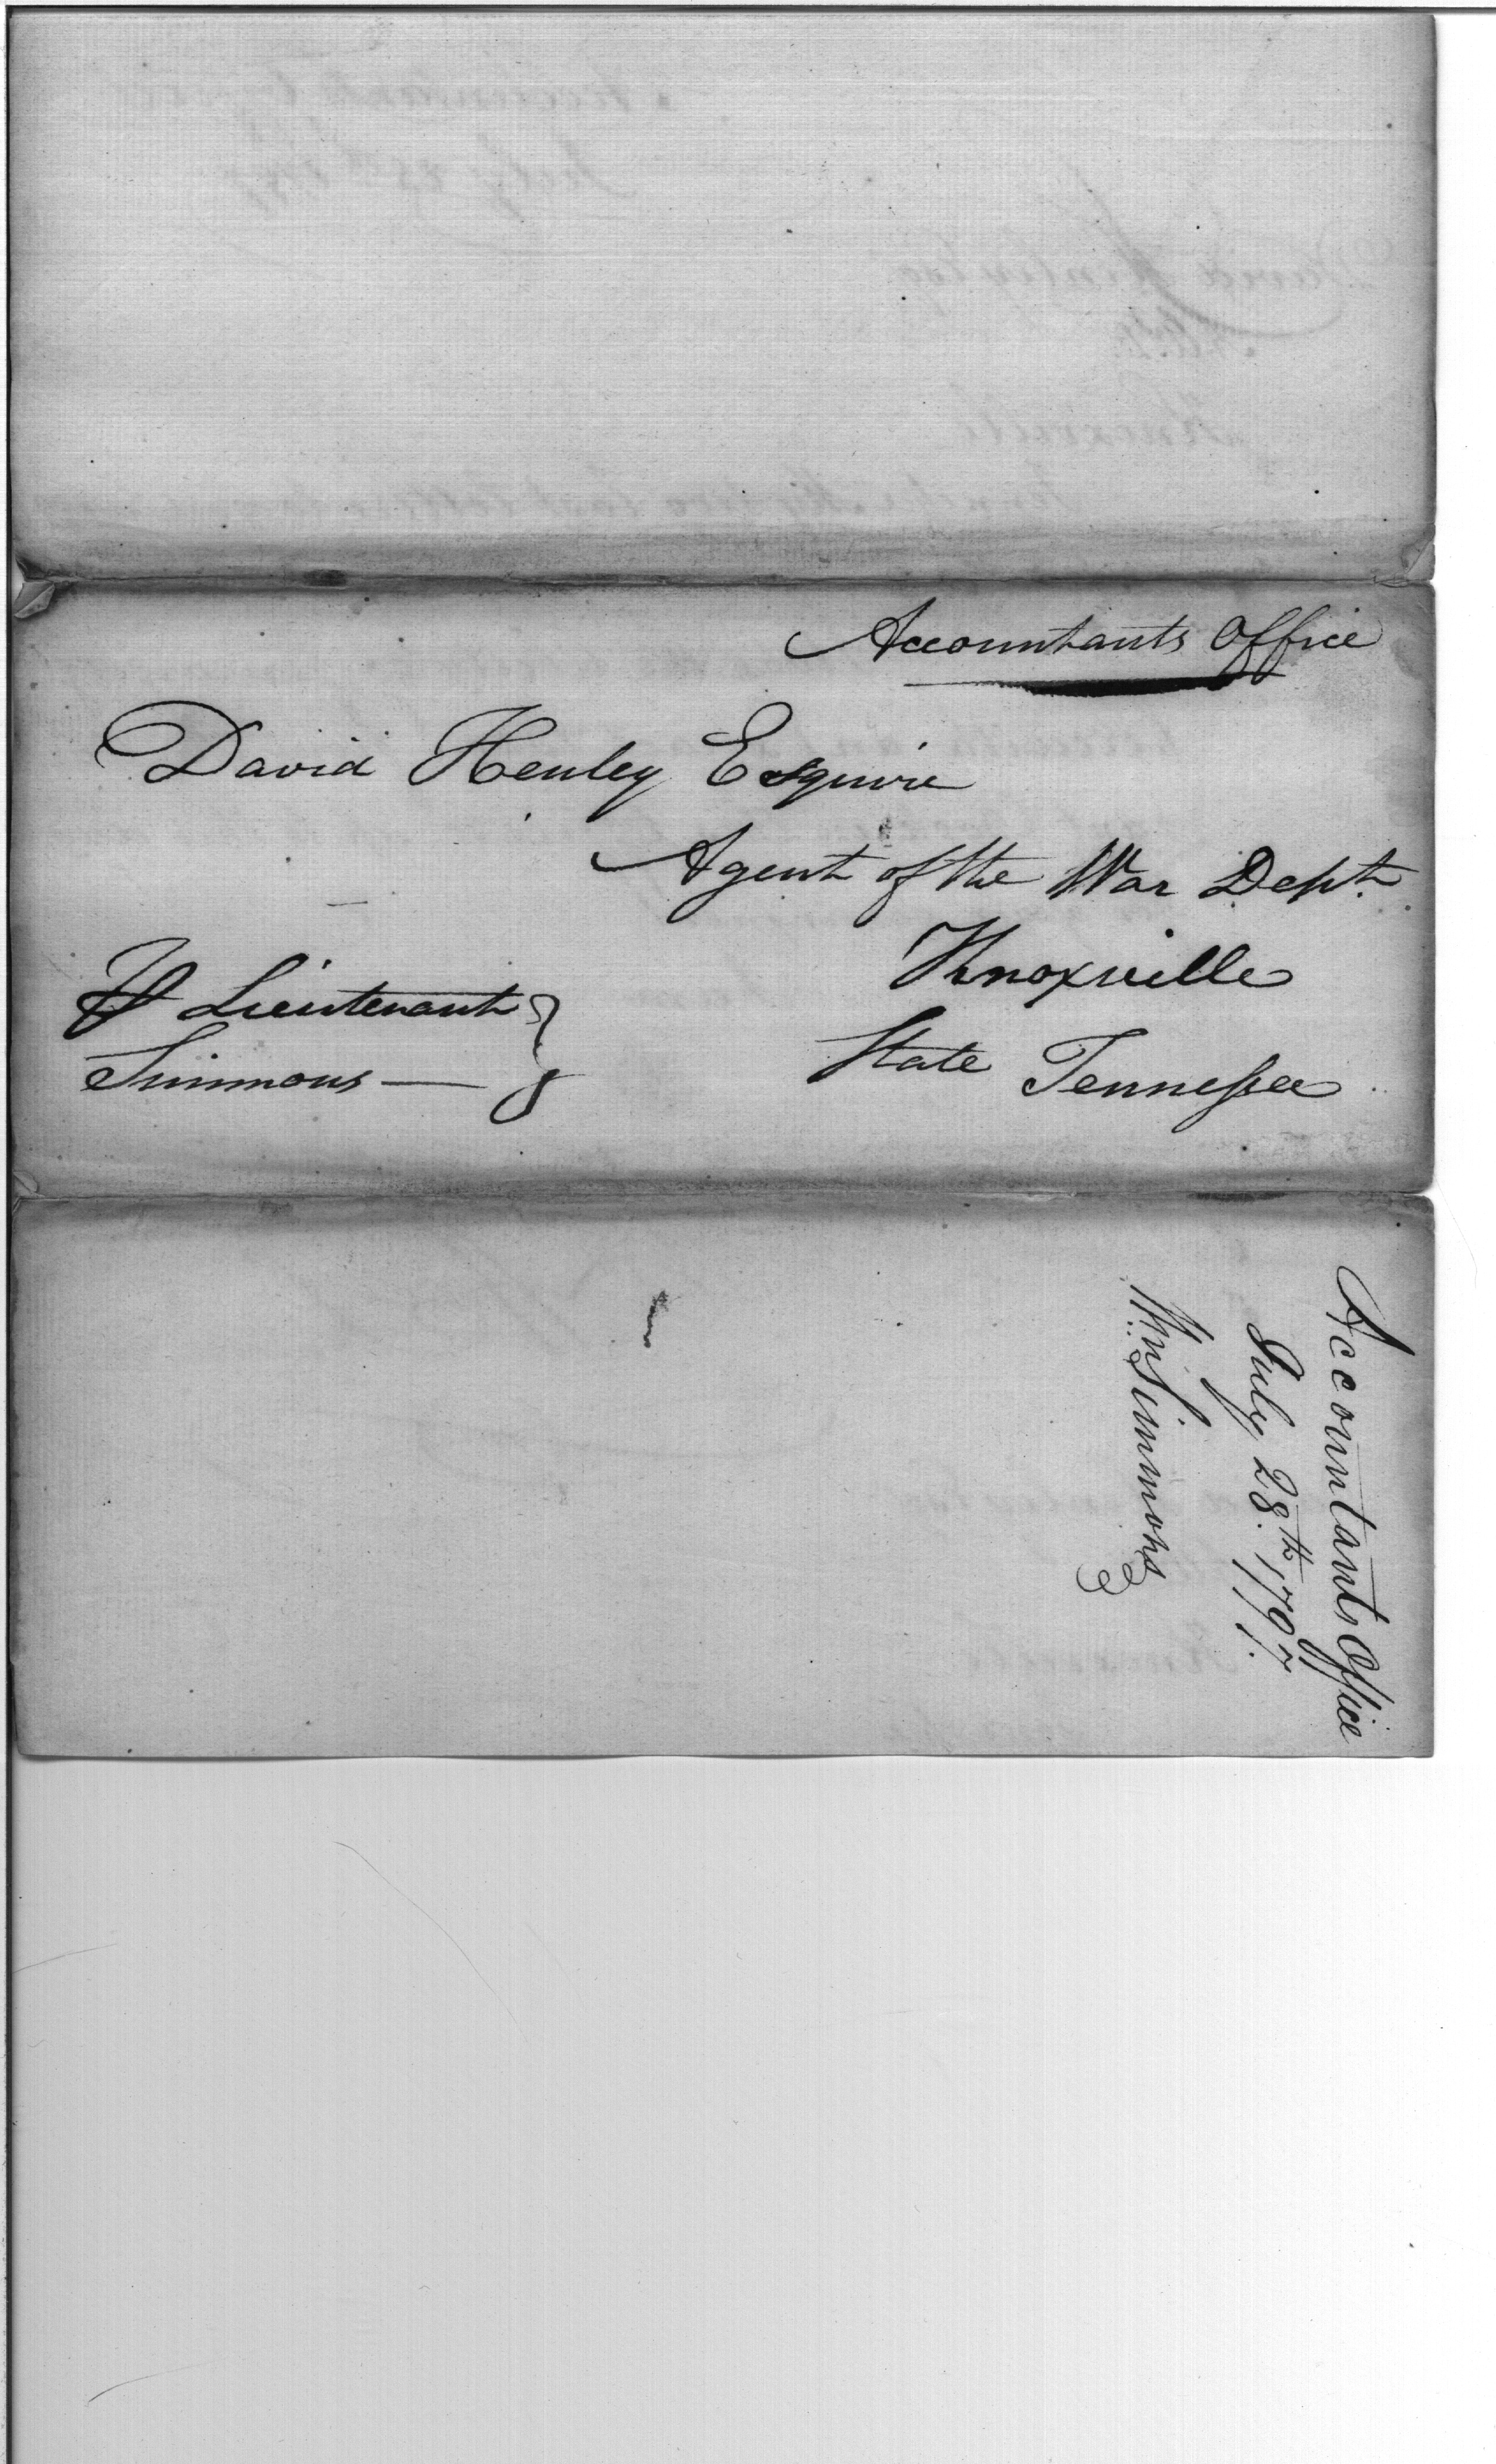 Accountants Office
David Henley Esquire
Agent of the War Dept.
Knoxville
State Tennessee
⅌ Lieutenant
Simmons —
Accountants Office
July 28th. 1797.
Wm Simmons